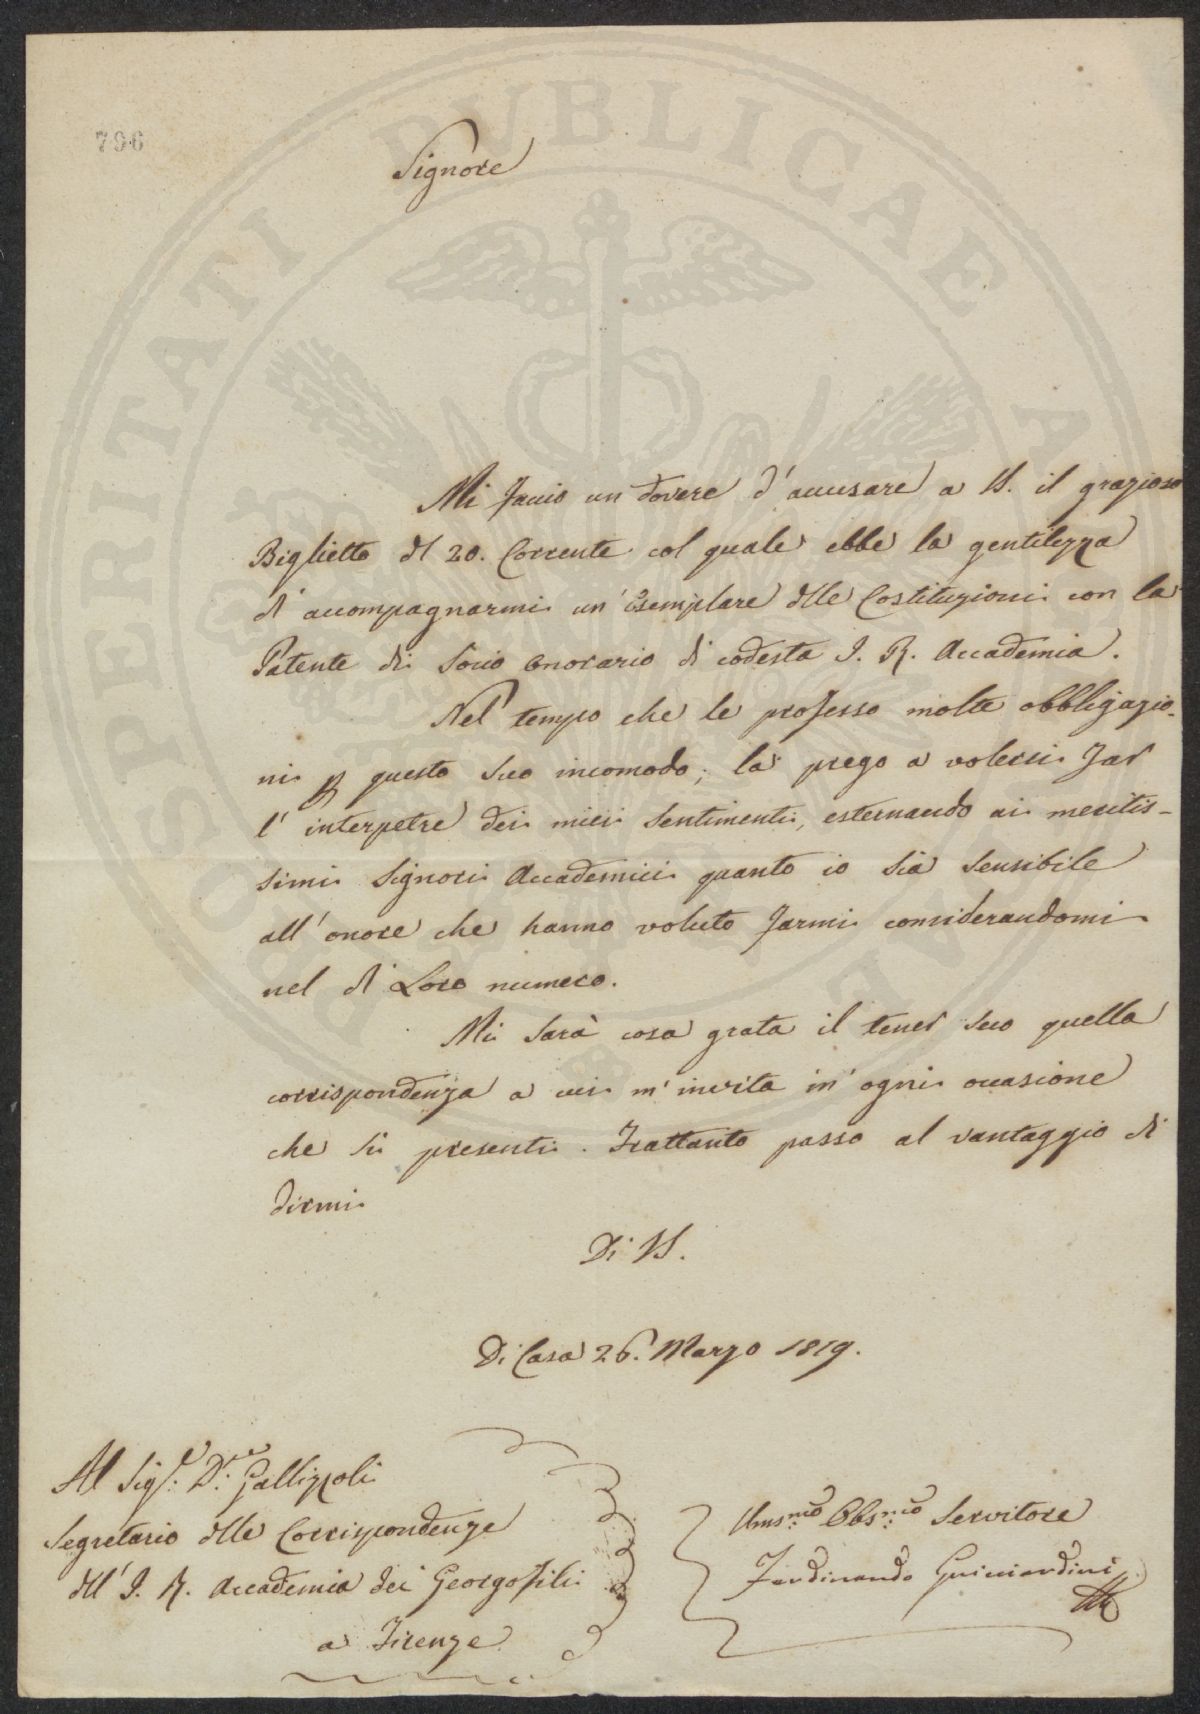 796
Signore
Mi faccio un dovere d'accusare a VS. il grazioso
Biglietto dl 20. Corrente col quale ebbe la gentilezza
d'accompagnarmi un'Esemplare dlle Costituzioni con la
Patente di Socio Onorario di codesta I. R. Accademia.
Nel tempo che le professo molte obbligazio-
ni p questo suo incomodo; la prego a volersi far
l'interpetre dei miei sentimenti, esternando ai meritis-
simi Signori Accademici quanto io sia sensibile
all'onore che hanno voluto farmi considerandomi
nel di Loro numero.
Mi sarà cosa grata il tener seco quella
corrispondenza a cui m'invita in'ogni occasione
che si presenti. Frattanto passo al vantaggio di
dirmi
Di VS.
Di Casa 26. Marzo 1819.
Al Sigr. Dre. Gallizzoli
Segretario dlle Corrispondenze
dll'I. R. Accademia dei Georgofili
a Firenze
Umsmo. Obsmo. Servitore
Ferdinando Guicciardini
PROSPERITATI PUBLICAE AUGENDAE